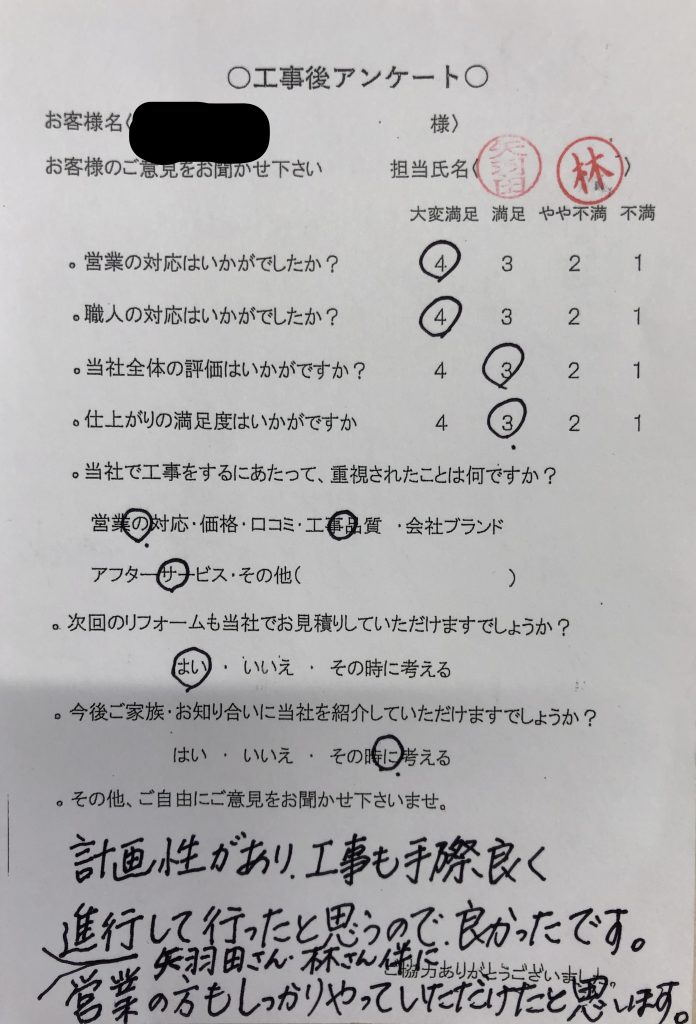 ○工事後アンケート○
お客様名〈 様〉
お客様のご意見をお聞かせ下さい 担当氏名〈 矢羽田 林 〉
大変満足 満足 やや不満 不満
。営業の対応はいかがでしたか？ 4 3 2 1
。職人の対応はいかがでしたか？ 4 3 2 1
。当社全体の評価はいかがですか？ 4 3 2 1
。仕上がりの満足度はいかがですか 4 3 2 1
。当社で工事をするにあたって、重視されたことは何ですか？
営業の対応・価格・口コミ・工事品質 ・会社ブランド
アフターサービス・その他（ ）
。次回のリフォームも当社でお見積りしていただけますでしょうか？
はい ・ いいえ ・ その時に考える
。今後ご家族・お知り合いに当社を紹介していただけますでしょうか？
はい ・ いいえ ・ その時に考える
。その他、ご自由にご意見をお聞かせ下さいませ。
計画性があり、工事も手際良く
進行して行ったと思うので、良かったです。
矢羽田さん・林さん伴に
ご協力ありがとうございました
営業の方もしっかりやっていただけたと思います。